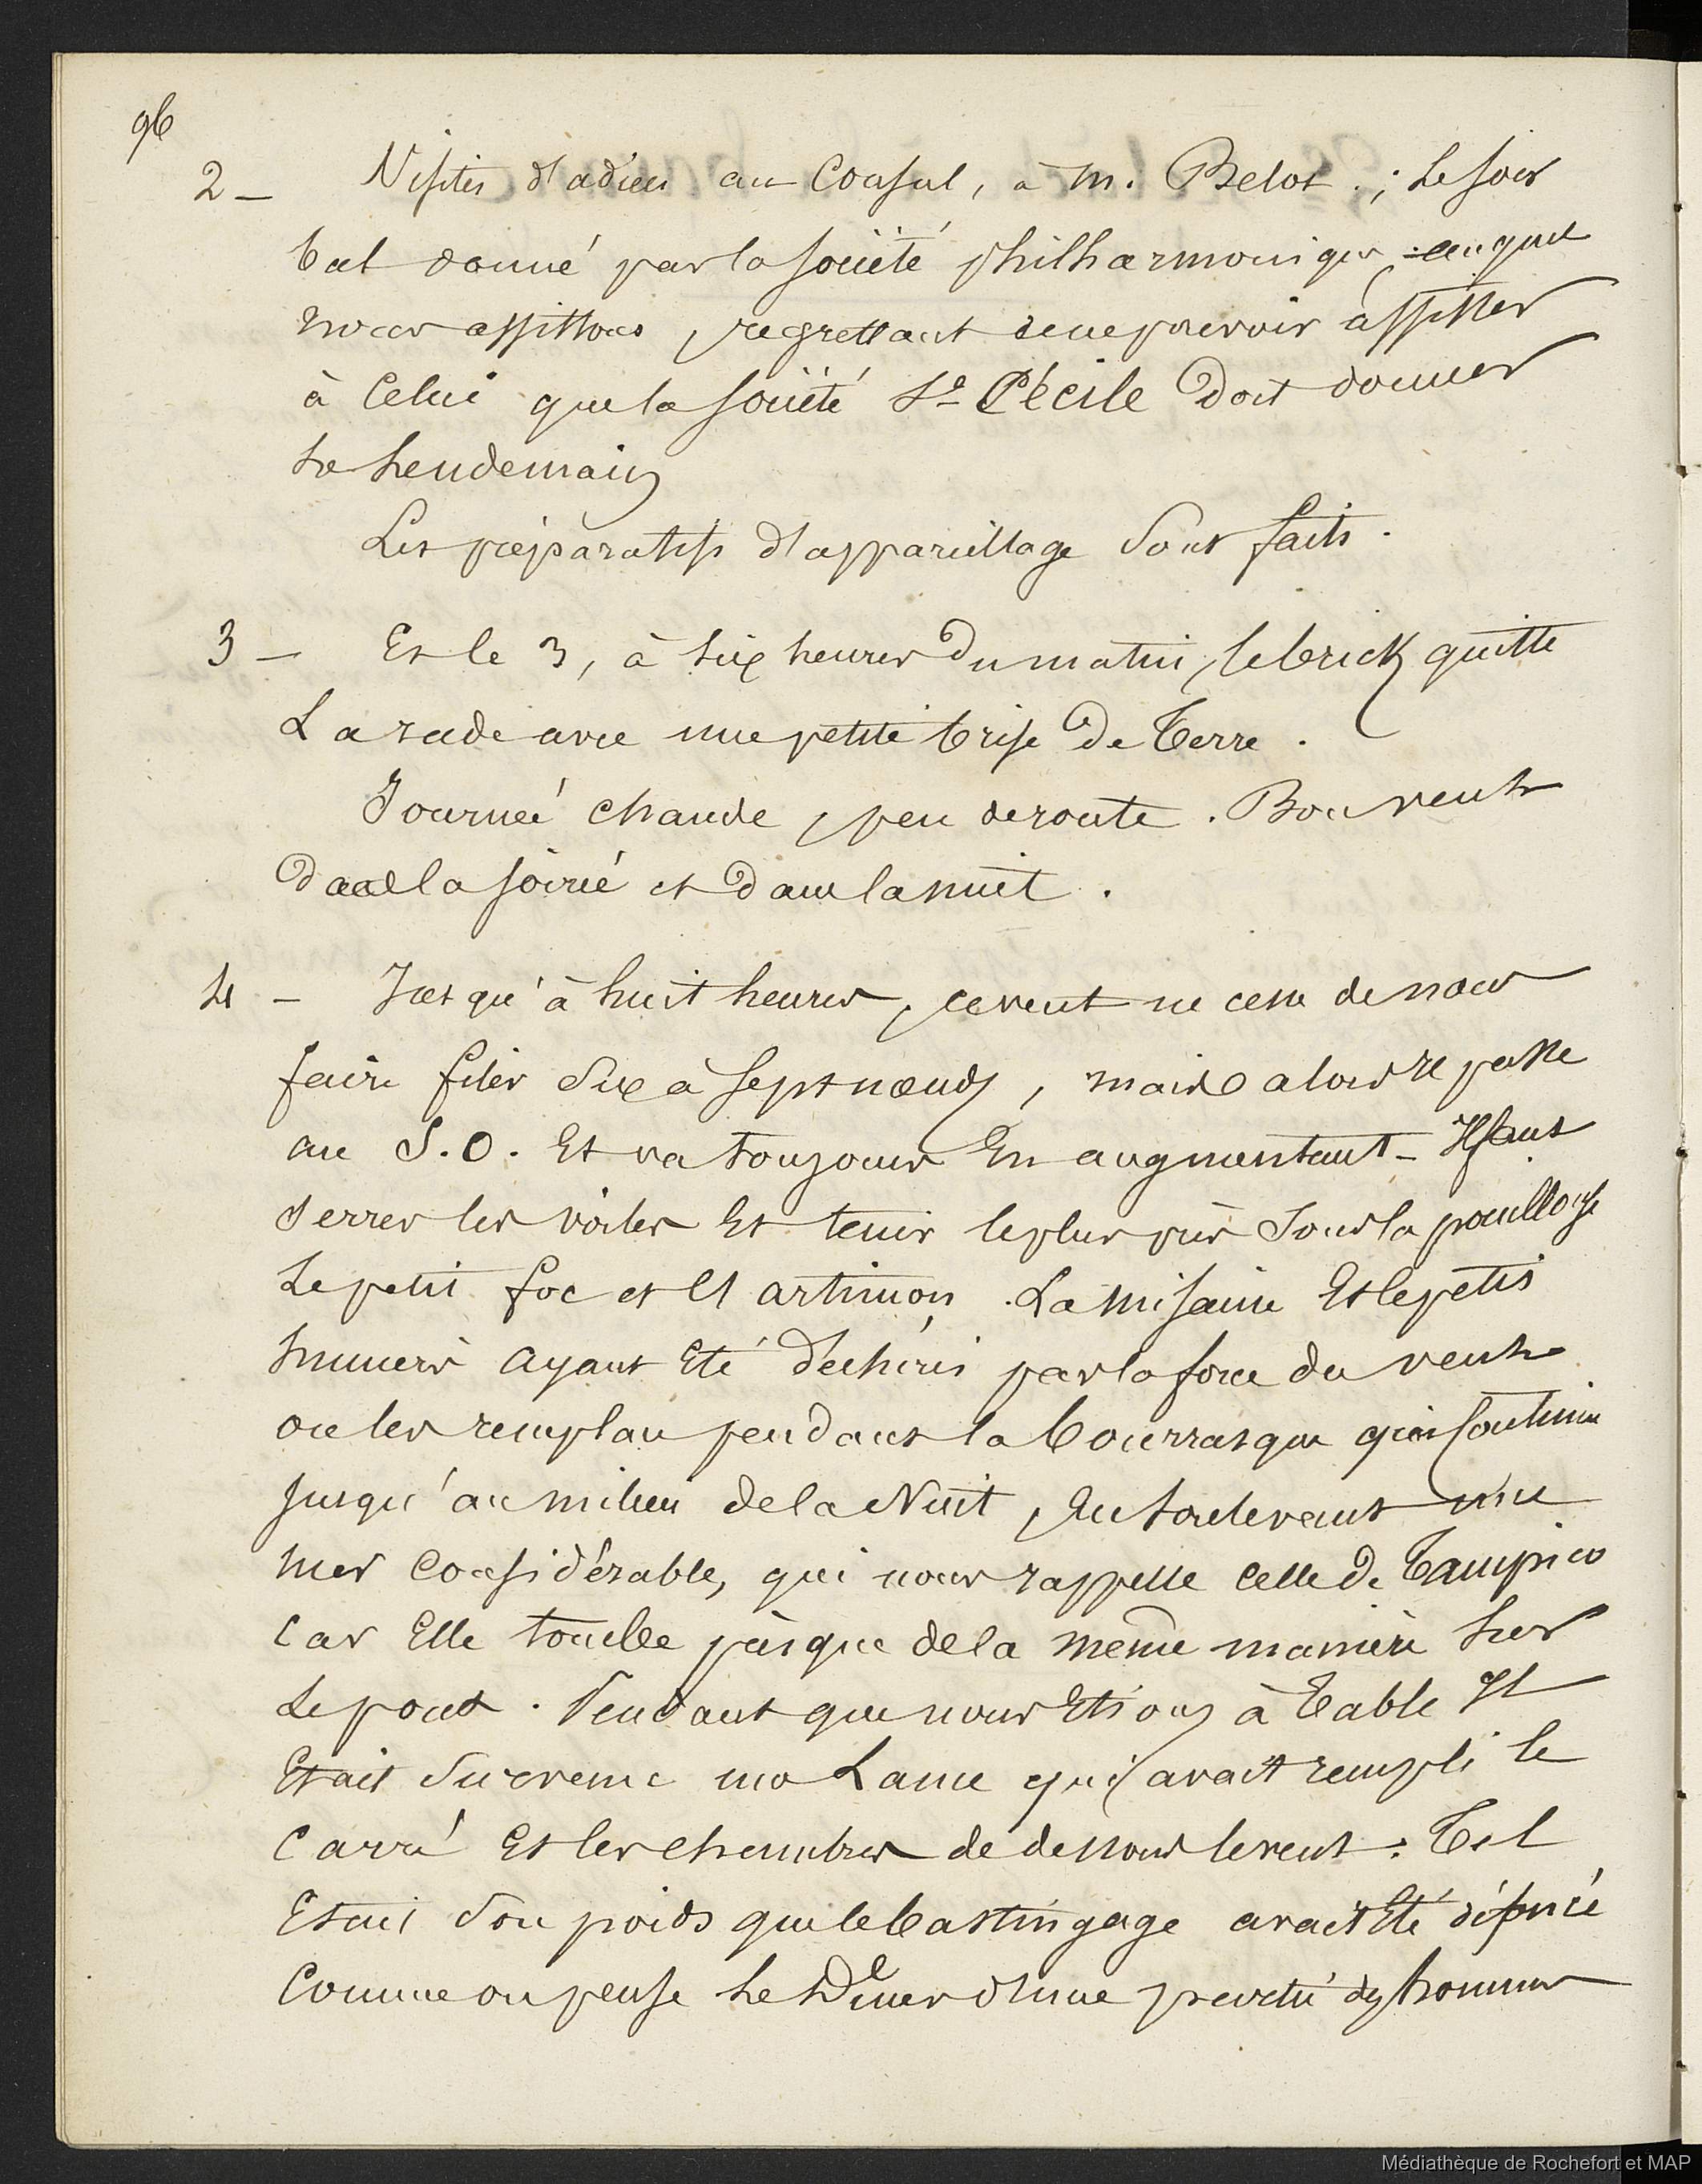 96
2 - Visites d'adieu au Consul, à M. Belot. ; Le soir
bal donné par la société philharmonique auquel
nous assistons, regrettant de ne pouvoir assister
à Celui que la société Ste Cécile doit donner
le lendemain
Les préparatifs d'appareillage sont faits.
3 - Et le 3, à six heures du matin, le brick quitte
La rade avec une petite brise de Terre.
Journée chaude, peu de route. Bon vent
dans la soirée et dans la nuit.
4 - Jusqu'à huit heures, ce vent ne cesse de nous
faire filer six à sept nœuds, mais alors il passe
au S.O. Et va toujours En augmentant - Il faut
serrer les voiles Et tenir le plus près sous la pouillouse
Le petit foc et l'artimon. La misaine Et le petit
hunier ayant Eté déchirés par la force du vent
on les remplace pendant la bourrasque qui souffle
jusqu'au milieu de la Nuit, En soulevant une
mer Considérable, qui nous rappelle celle de Tampico
Car Elle tombe presque de la même manière sur
Le pont. Pendant que nous Etions à Table Il
Etait survenu une Lame qui avait rempli le
Carré Et les chambres de dessous le vent. Tel
Etait son poids que le bastingage avait Eté défoncé
Comme on pense Le Dîner d'une partie des hommes
Médiathèque de Rochefort et MAP